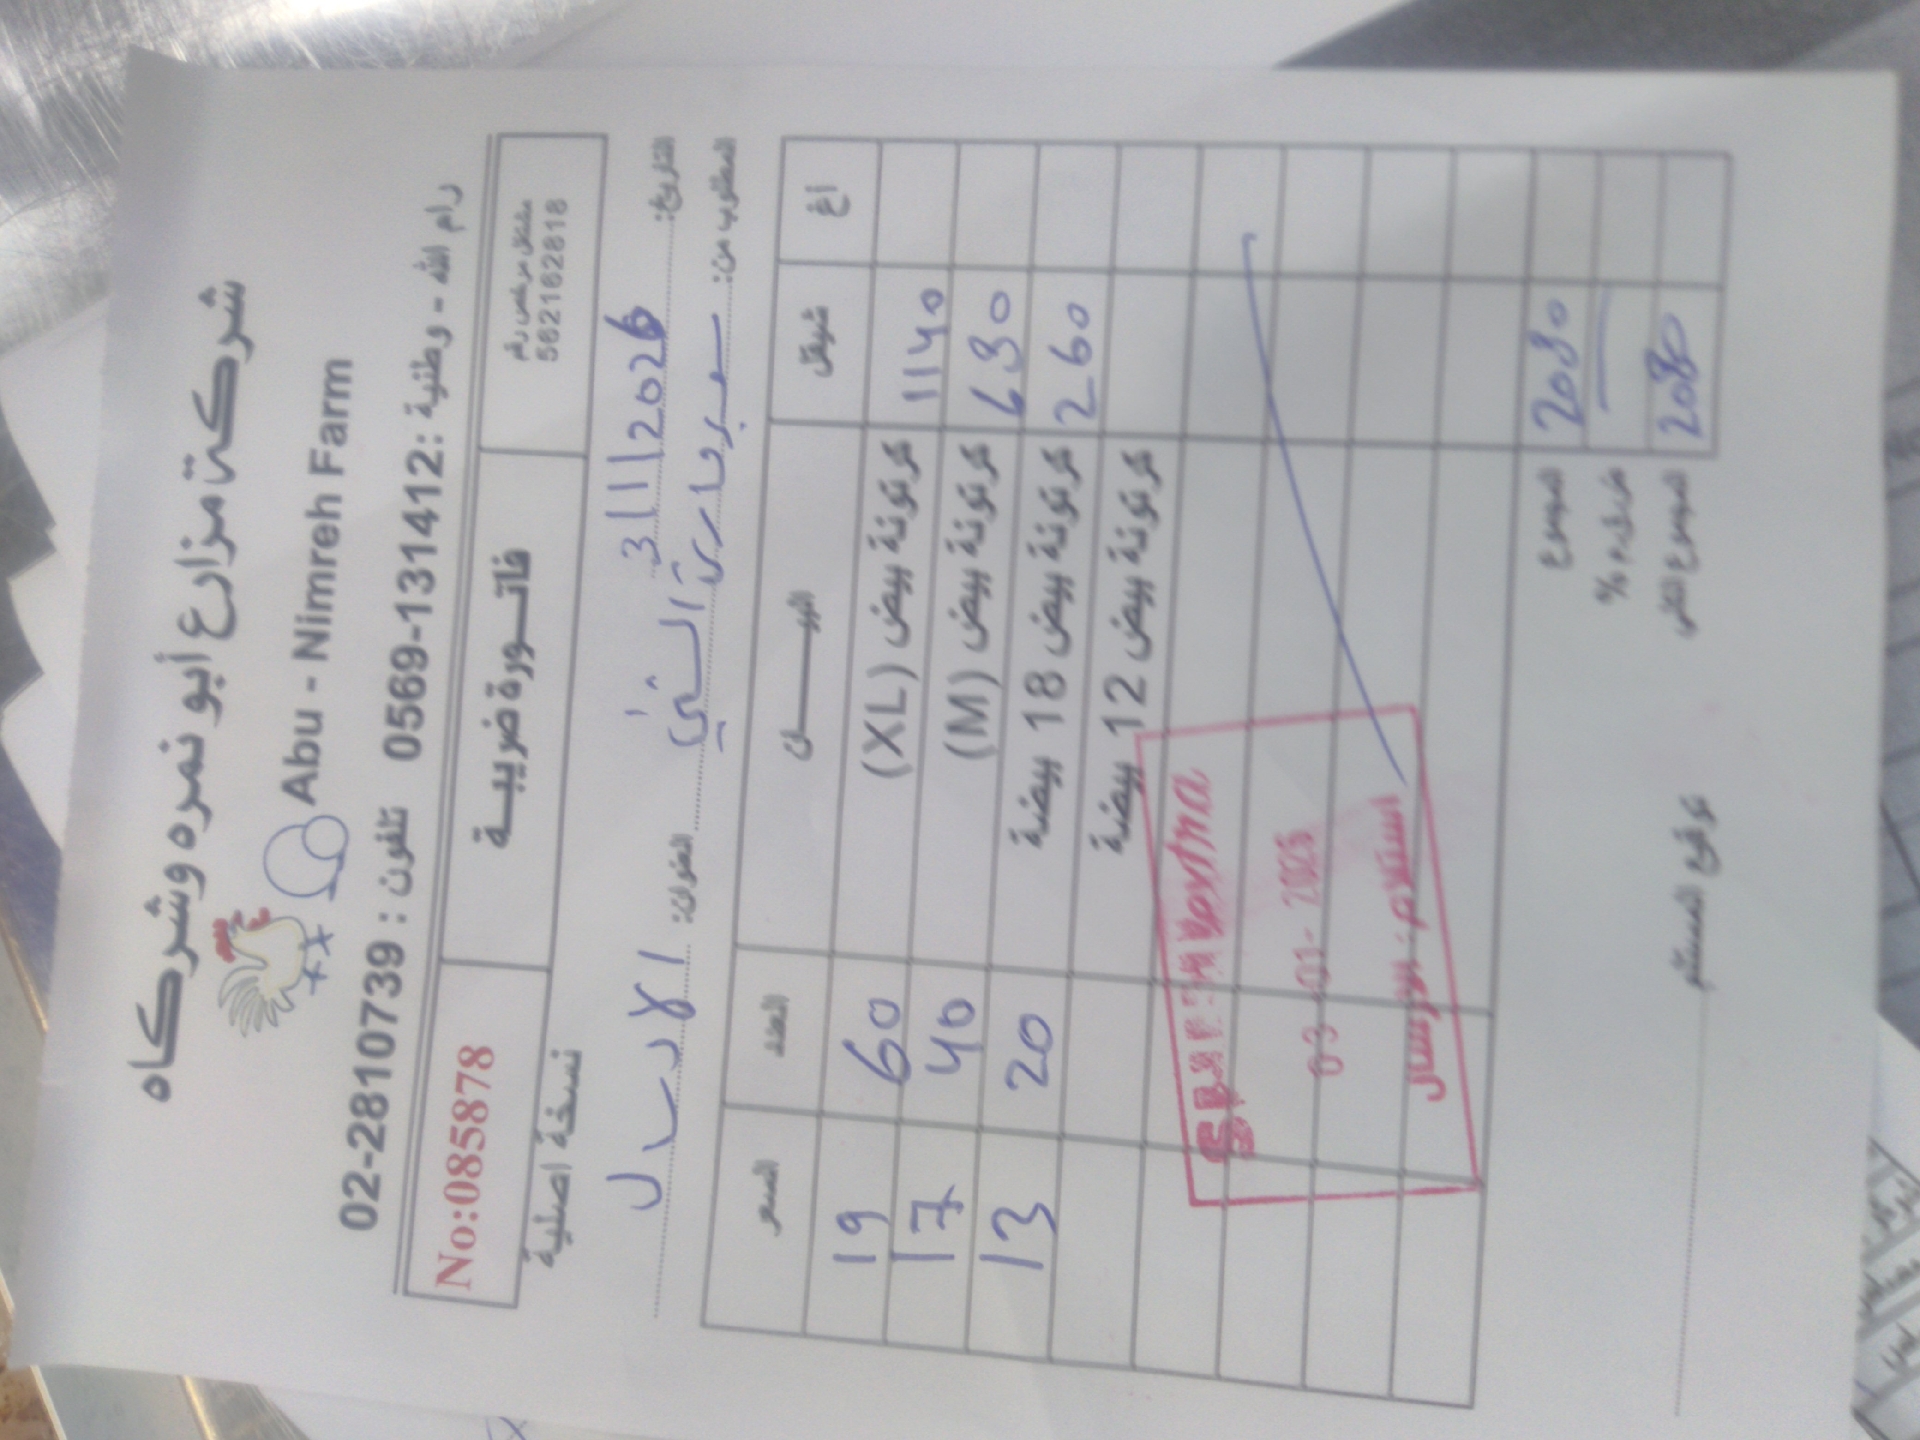 شركة مزارع أبو نمره وشركاه
Abu - Nimreh Farm
رام الله - وطنية : 0569-131412 تلفون : 02-2810739
مشتغل مرخص رقم
562162818
فاتورة ضريبية
No:085878
نسخة اصلية
التاريخ: 3/1/2026
المطلوب من: سوبر ماركت
العنوان: الارسال
اغ شيقل البيان العدد السعر
1140 كرتونة بيض (XL) 60 19
690 كرتونة بيض (M) 40 17
260 كرتونة بيض 18 بيضة 20 13
كرتونة بيض 12 بيضة
03 -01- 2026
استلام: الارسال
المجموع 2080
ض.ق.م %
المجموع الكلي 2080
توقيع المستلم